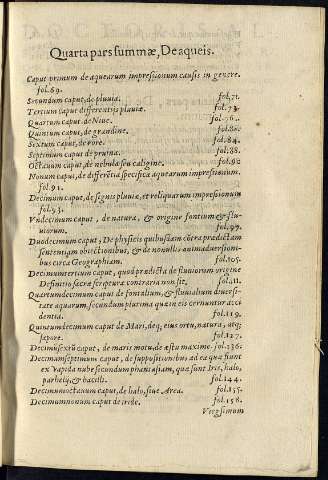 Quarta pars summæ, De aqueis.
Caput primum de aquearum impressionum causis in genere.
fol.69.
Secundum caput, de pluuia. fol.71.
Tertium caput differentijs pluuiæ. fol.73.
Quartum caput de Niue. fol.76.
Quintum caput, de grandine. fol.80.
Sextum caput, de rore. fol.84.
Septimum caput de pruina. fol.88.
Octauum caput, de nebula seu caligine. fol.90
Nonum caput, de differētia specifica aquearum impressionum.
fol.91.
Decimum caput, de signis pluuiæ, et reliquarum impressionum
fol.93.
Vndecimum caput, de natura, & origine fontium & flu-
uiorum. fol.99.
Duodecimum caput, De physicis quibusdam cōtra prædictam
sententiam obiectionibus, & de nonullis animaduersioni-
bus circa Geographiam. fol.105.
Decimumtertium caput, quod prædicta de fluuiorum origine
Definitio sacræ scripturæ contraria non sit. fol.111.
Quartumdecimum caput de fontalium, & fluuialium diuersi-
tate aquarum, secundum plurima quæ in eis cernuntur acci
dentia. fol.119.
Quintumdecimum caput de Mari, deq; eius ortu, natura, atq;
sapore. fol.127.
Decimūsextū caput, de maris motu, de æstu maximè. fol.136.
Decimumseptimum caput, de suppositionibus ad ea quæ fiunt
ex rapida nube secundum phantasiam, quæ sunt Iris, halo,
parhelij, & bacilli. fol.144.
Decimumoctauum caput, de halo, siue Area. fol.155.
Decimumnonum caput de iride. fol.158.
Vigesimum